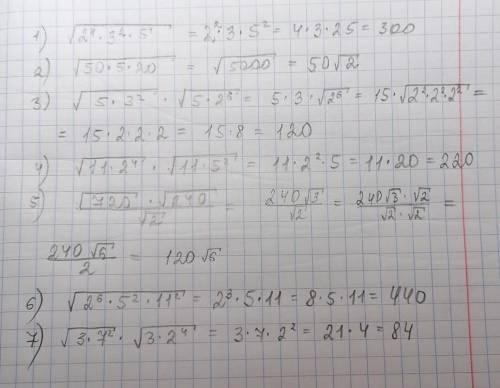 1) √(2⁴·3²·5⁴) = 2²·3·5² = 4·3·25 = 300
2) √(50·5·20) = √5000 = 50√2
3) √(5·3²) · √(5·2⁶) = 5·3·√(2⁶) = 15·√(2²·2²·2²) =
= 15·2·2·2 = 15·8 = 120
4) √(11·2⁴) · √(11·5²) = 11·2²·5 = 11·20 = 220
5) (√720 · √240)/√2 = 240√3/√2 = (240√3·√2)/(√2·√2) =
240√6/2 = 120√6
6) √(2⁶·5²·11²) = 2³·5·11 = 8·5·11 = 440
7) √(3·7²) · √(3·2⁴) = 3·7·2² = 21·4 = 84